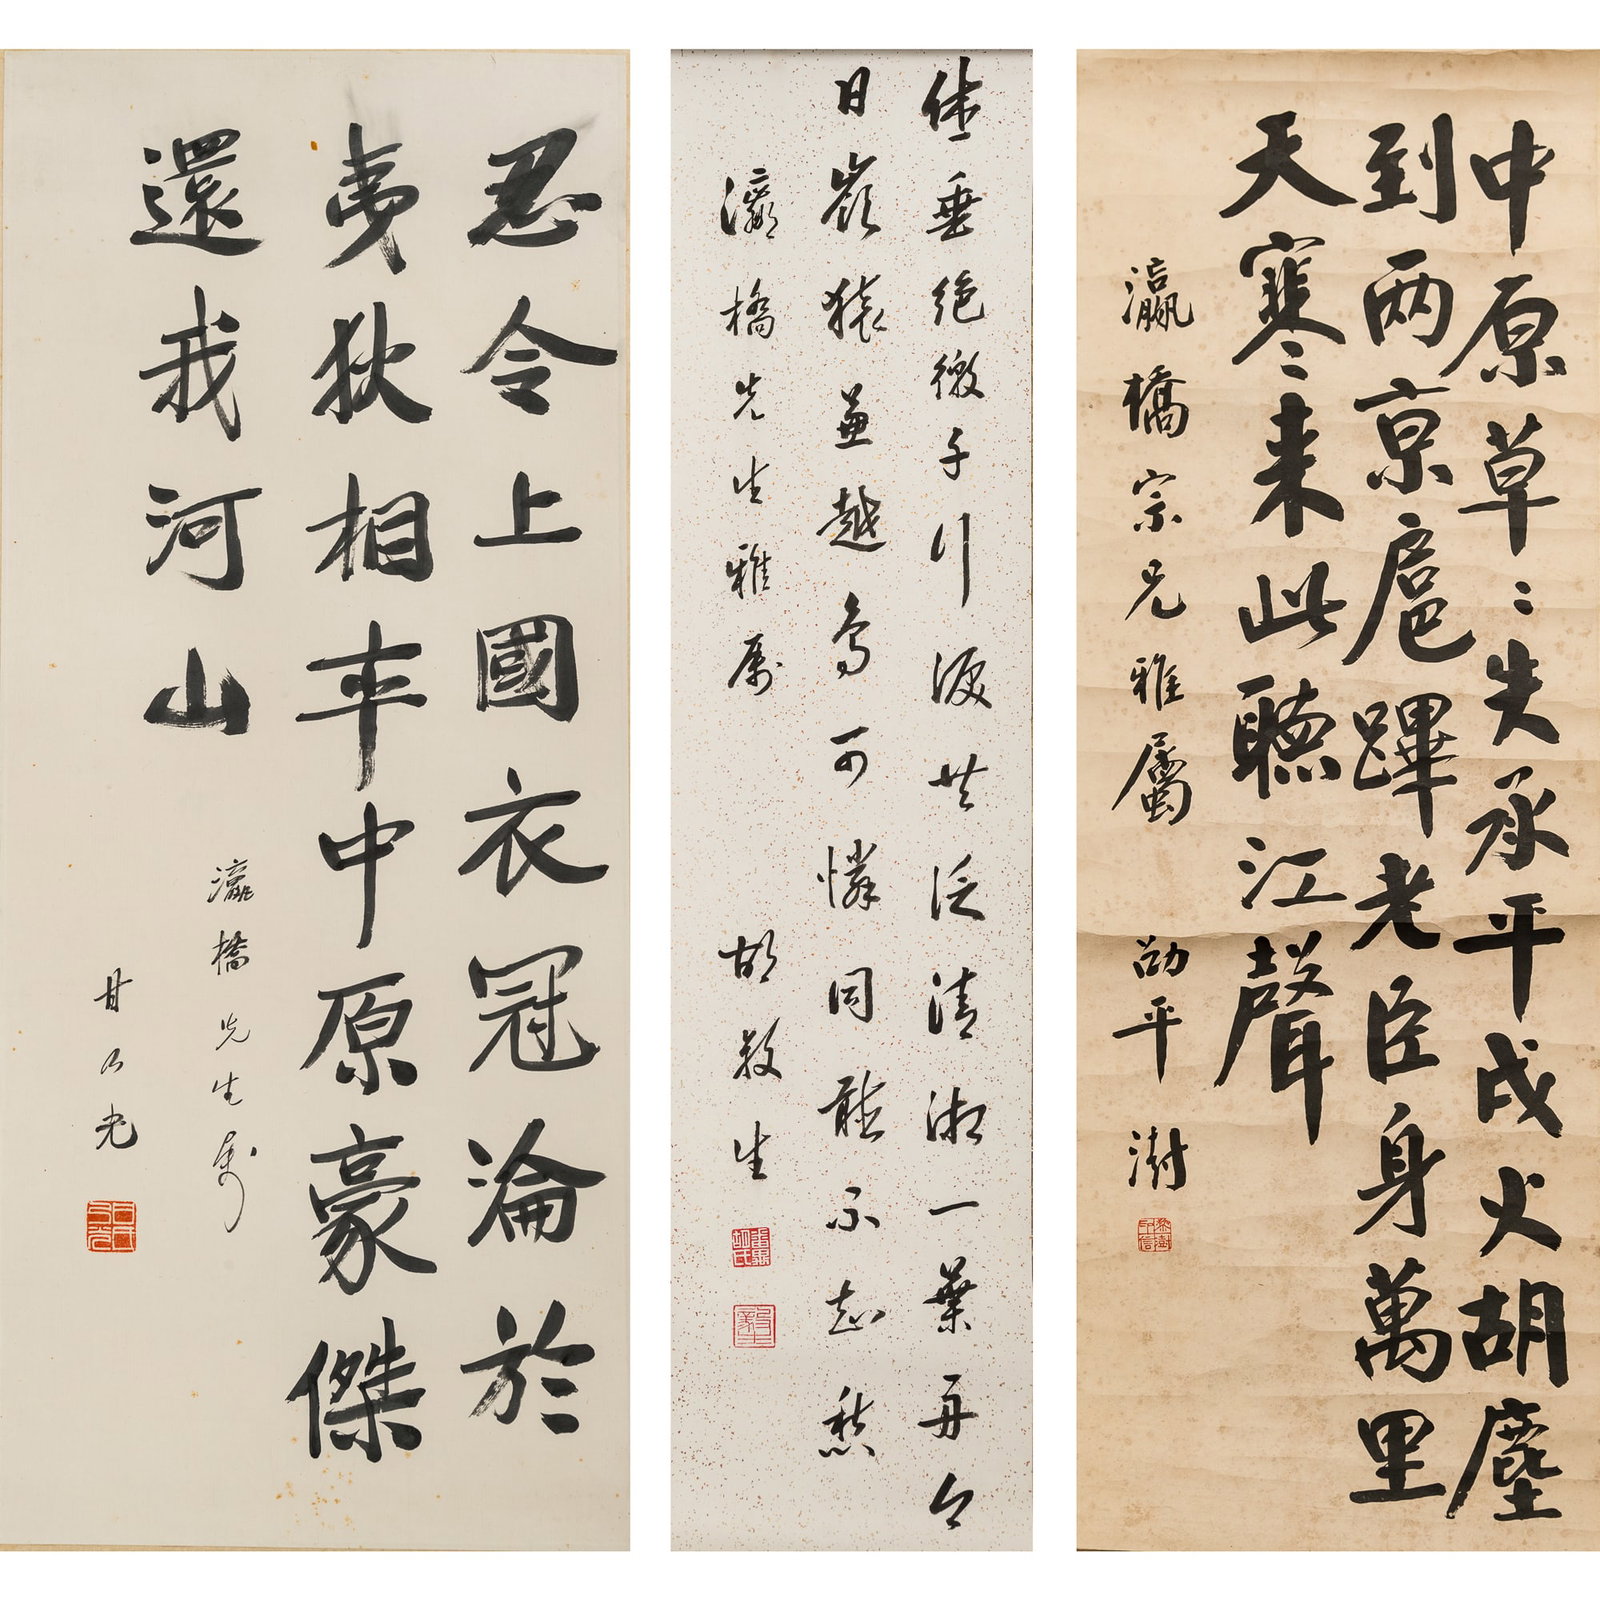 中原草〻失承平戍火胡塵
到两京扈蹕老臣身萬里
天寒〻来此聽江聲
瀛橋宗兄雅屬 劭平澍
休垂絕徼千行淚共泛清湘一葉舟今
日嶺猿兼越鳥可憐同聽不知愁
瀛橋先生雅属 胡毅生
忍令上國衣冠淪於
夷狄相率中原豪傑
還我河山
瀛橋先生属
甘乃光